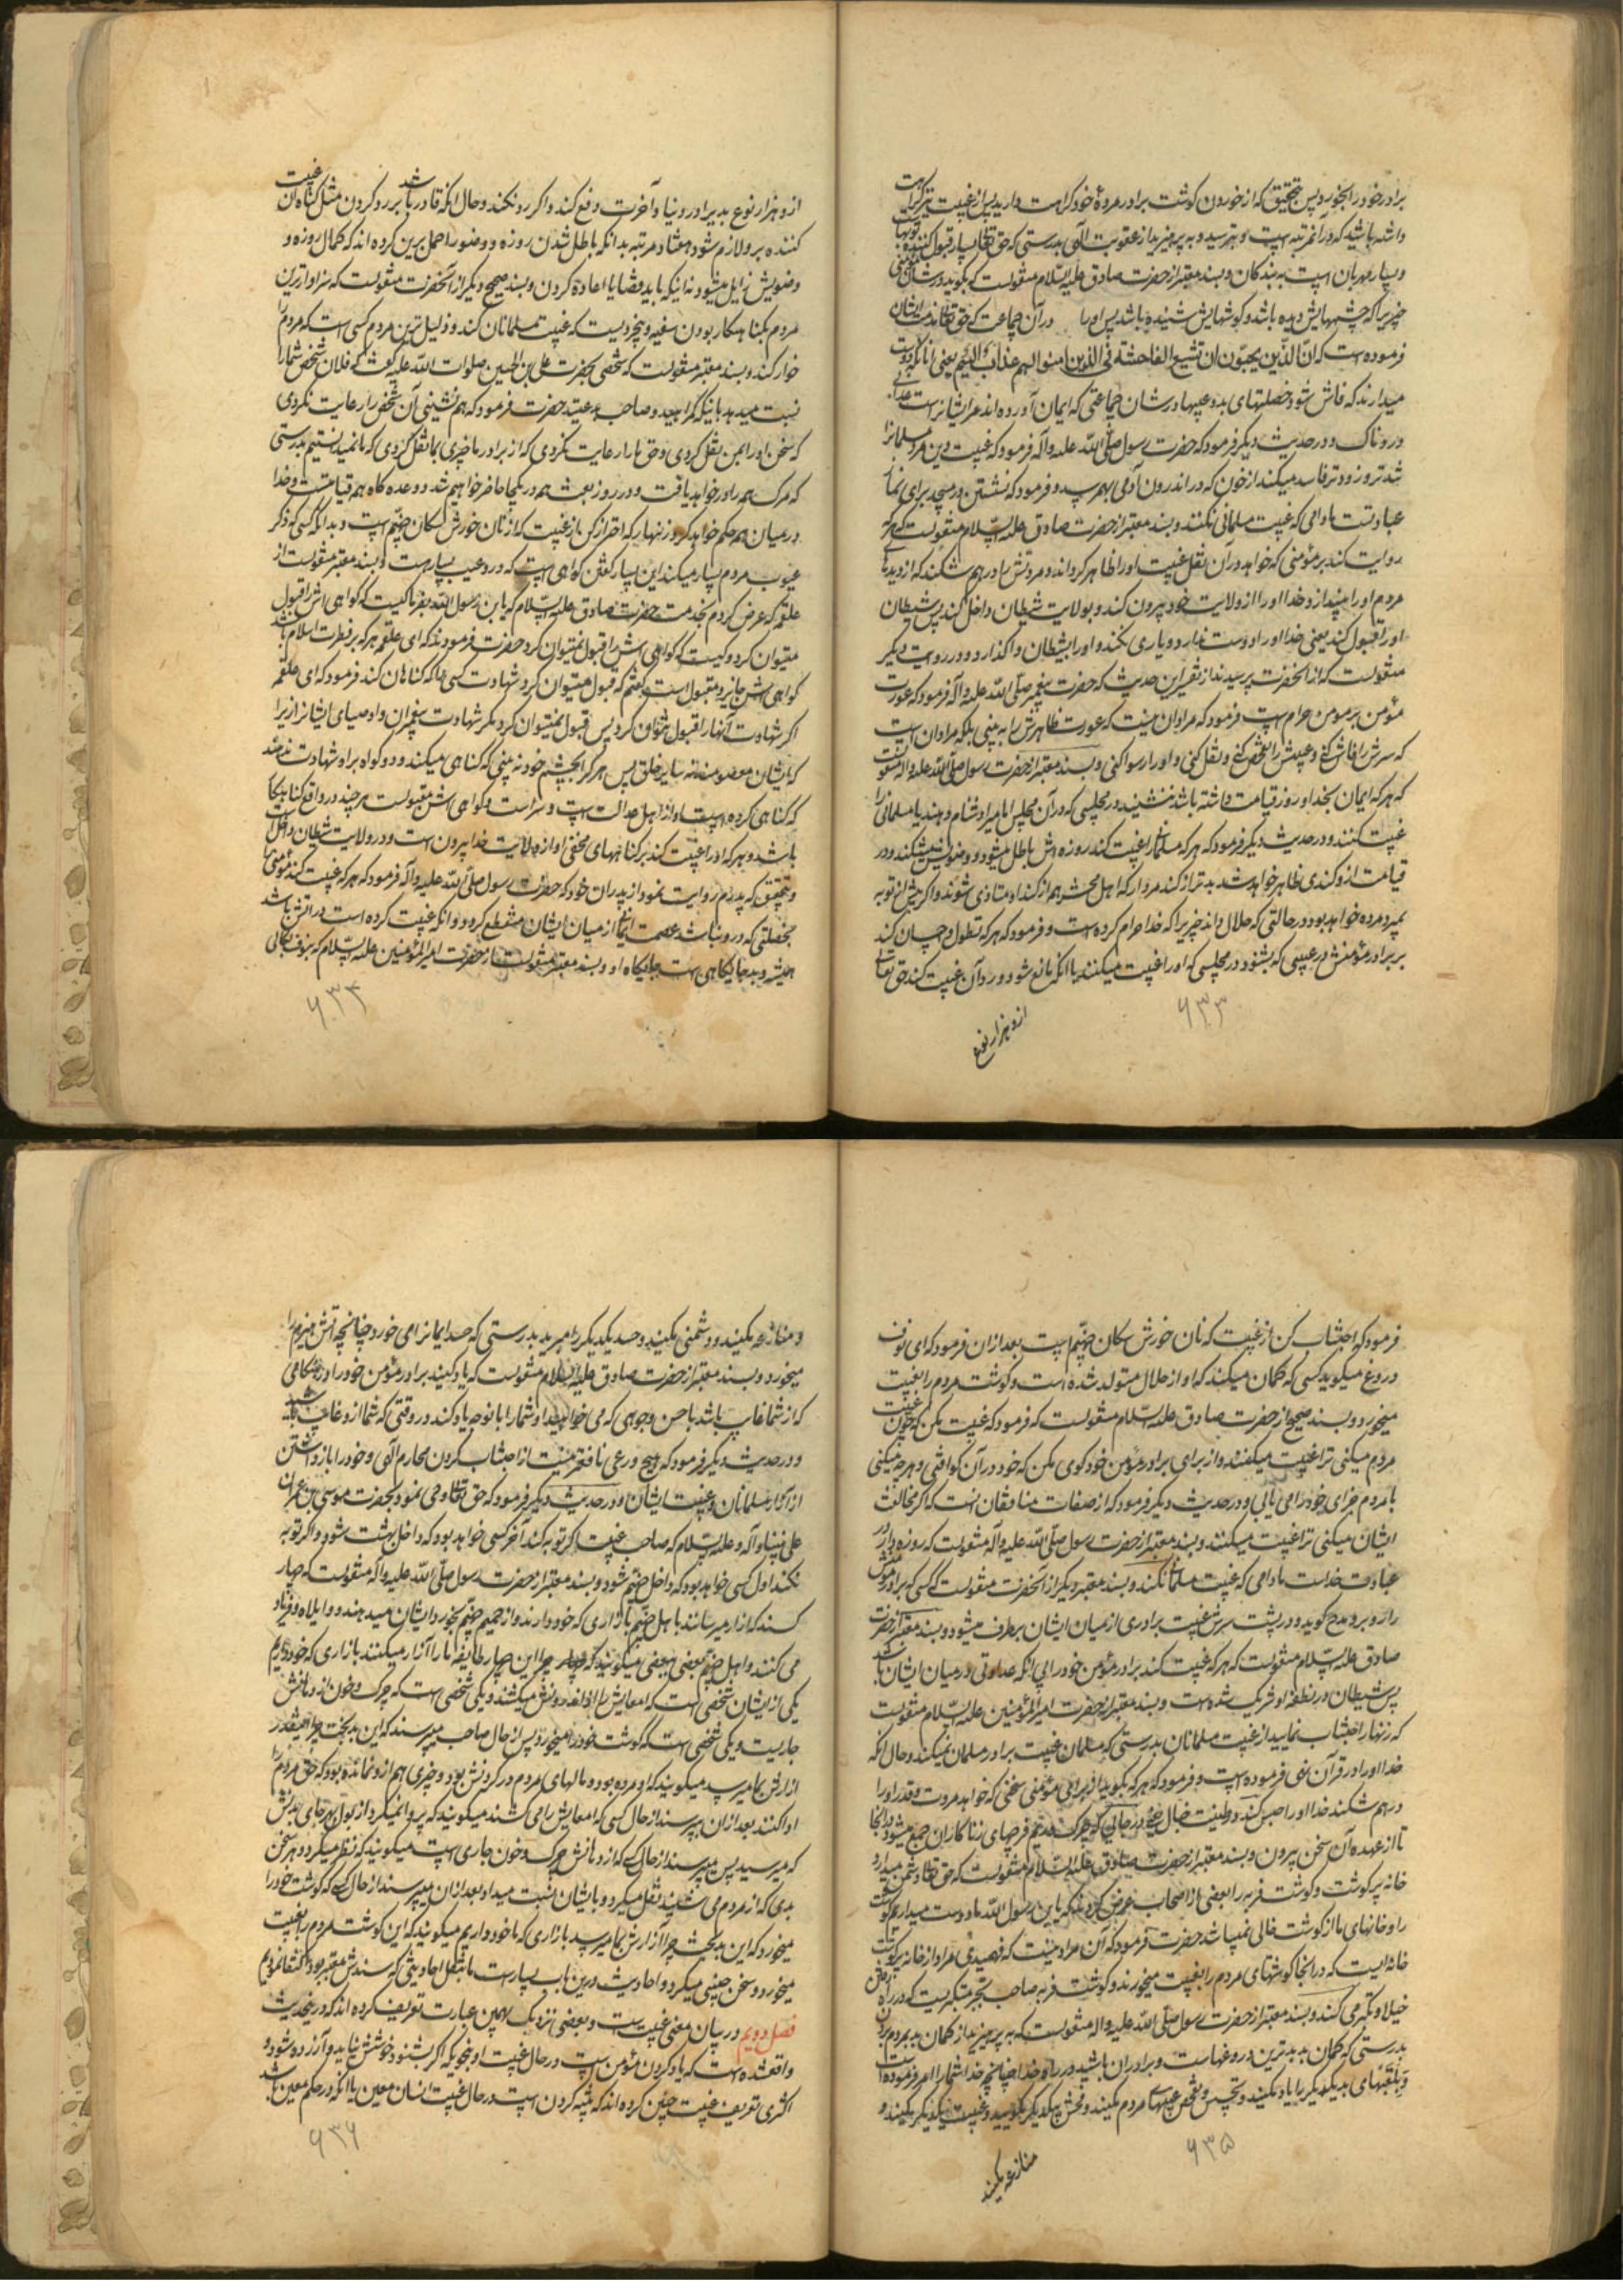 برادر خود را بخورد پس بتحقیق که از خوردن گوشت برادر مردهٔ خود کراهت دارید پس از غیبت نیز کراهت
داشته باشید که در آنمرتبه است و بترسید و به پرهیزید از عقوبت الهی بدرستی که حق تعالی بسیار قبول کننده توبهاست
و بسیار مهربان است به بندگان و بسند معتبر از حضرت صادق علیه السّلام منقولست که هر که بگوید در شأن مؤمنی
چیزیرا که چشمهایش دیده باشد و گوشهایش شنیده باشد پس او را در آن جماعت که حق تعالی در مذمت ایشان
فرموده است که انّ الّذین یحبّون ان تشیع الفاحشة فی الذین امنوا لهم عذاب الیم یعنی آنانکه دوست
میدارند که فاش شود خصلتهای بد و عیبها در شان جماعتی که ایمان آورده اند مر ایشانراست عذابی
دردناک و در حدیث دیگر فرمود که حضرت رسول صلّی اللّه علیه و آله فرمود که غیبت دین مرد مسلمانرا
تندتر و زودتر فاسد میکند از خون که در اندرون آدمی بهم رسد و فرمود که نشستن در مسجد برای نماز
عبادتست مادامی که غیبت مسلمانی نکنند و بسند معتبر از حضرت صادق علیه السّلام منقولست که هر که
روایت کند بر مؤمنی که خواهد در آن نقل غیبت او را ظاهر گرداند و مروتش را درهم شکند که از دیدهای
مردم او را بیندازد خدا او را از ولایت خود بیرون کند و بولایت شیطان داخل کند پس شیطان
او را قبول کند یعنی خدا او را دوست ندارد و یاری نکند و او را بشیطان واگذارد و در روایت دیگر
منقولست که از آنحضرت پرسیدند از تفسیر این حدیث که حضرت پیغمبر صلّی اللّه علیه و آله فرمود که عورت
مؤمن بر مومن حرام است فرمود که مراد آن نیست که عورت ظاهرش را به بینی بلکه مراد آن است
که سرش را فاش کنی و عیبش را تفحص کنی و نقل کنی و او را رسوا کنی و بسند معتبر از حضرت رسول صلّی اللّه علیه و اله منقولست
که هر که ایمان بخدا و روز قیامت داشته باشد ننشیند در مجلسی که در آن مجلس امامیرا دشنام دهند یا مسلمانی را
غیبت کنند و در حدیث دیگر فرمود که هر که مسلمانیرا غیبت کند روزه اش باطل میشود و وضویش میشکند و در
قیامت از و گندی ظاهر خواهد شد بدتر از گند مردار که اهل محشر همه از گند او متاذی شوند و اگر پیش از توبه
بمیرد مرده خواهد بود در حالتی که حلال داند چیزیرا که خدا حرام کرده است و فرمود که هر که تطول و احسان کند
بر برادر مؤمنش در عیبی که بشنود در مجلسی که او را غیبت میکنند باآنکه مانع شود و رد آن غیبت کند حق تعالی
۶۳۳
از و هزار نوع
از و هزار نوع بدیرا در دنیا و آخرت دفع کند و اگر رد نکند و حال آنکه قادر باشد بر رد کردن مثل گناه آن غیبت
کننده بر و لازم شود هفتاد مرتبه بدانکه باطل شدن روزه و وضو را حمل برین کرده اند که کمال روزه و
وضویش زایل میشود نه اینکه باید قضا یا اعاده کردن و بسند صحیح دیگر از آنحضرت منقولست که سزاوارترین
مردم بگناهکار بودن سفیه و بیخردیست که غیبت مسلمانان کند و ذلیل ترین مردم کسی است که مردم را
خوار کند و بسند معتبر منقولست که شخصی بحضرت علی بن الحسین صلوات اللّه علیه گفت که فلان شخص شما را
نسبت میدهد باینکه گمراهید و صاحب بدعتید حضرت فرمود که هم نشینی آن شخص را رعایت نکردی
که سخن او را بمن نقل کردی و حق ما را رعایت نکردی که از برادر ما چیزی بما نقل کردی که ما نمیدانستیم بدرستی
که مرگ همه را در خواهد یافت و در روز بعث همه در یکجا حاضر خواهیم شد و وعده گاه همه قیامتست و خدا
در میان همه حکم خواهد کرد و زنهار که احتراز کن از غیبت که از نان خورش سگان جهنّم است و بدانکه کسی که ذکر
عیوب مردم بسیار میکند این بسیار گفتن گواهی است که در و عیب بسیار هست و بسند معتبر منقولست از
علقمه که عرض کردم بخدمت حضرت صادق علیه السّلام که یابن رسول اللّه بفرما کیست که گواهی اش را قبول
میتوان کرد و کیست که گواهی اش را قبول نمیتوان کرد حضرت فرمودند که ای علقمه هر که بر فطرت اسلام باشد
گواهی اش جایز و مقبول است گفتم که قبول میتوان کرد شهادت کسی را که گناهان کند فرمود که ای علقمه
اگر شهادت آنها را قبول نتوان کرد پس قبول نمیتوان کرد مگر شهادت پیغمبران و اوصیای ایشانرا زیرا
که ایشان معصومند نه سایر خلق پس هر که را بچشم خود نه بینی که گناهی میکند و دو گواه بر او شهادت ندهند
که گناهی کرده است او از اهل عدالت است و سراست و گواهی اش مقبولست هر چند در واقع گناهکار
باشد و هر که او را غیبت کند بر گناههای مخفی او از ولایت خدا بیرون است و در ولایت شیطان داخل است
و بتحقیق که پدرم روایت نمود از پدران خود که حضرت رسول صلّی اللّه علیه و آله فرمود که هر که غیبت کند مؤمنی
بخصلتی که در و نباشد عصمت ایمان از میان ایشان منقطع گردد و آنکه غیبت کرده است در آتش باشد
همیشه و بد جایگاهی است جایگاه او و بسند معتبر منقولست از حضرت امیر المؤمنین علیه السّلام که بنوف بکالی
۶۳۴
فرمود که اجتناب کن از غیبت که نان خورش سگان جهنّم است بعد از ان فرمود که ای نوف
دروغ میگوید کسی که گمان میکند که او از حلال متولد شده است و گوشت مردم را بغیبت
میخورد و بسند صحیح از حضرت صادق علیه السّلام منقولست که فرمود که غیبت مکن که چون غیبت
مردم میکنی ترا غیبت میکنند و از برای برادر مؤمن خود گوی مکن که خود در آن گو افتی و هر چه میکنی
با مردم جزای خود را می یابی و در حدیث دیگر فرمود که از صفات منافقان انست که اگر مخالفت
ایشان میکنی ترا غیبت میکنند و بسند معتبر از حضرت رسول صلّی اللّه علیه و آله منقولست که روزه دار در
عبادت خداست مادامی که غیبت مسلمانی نکند و بسند معتبر دیگر از آنحضرت منقولست که کسی که برادر مؤمنش
را رو برو مدح گوید و در پشت سرش غیبت برادری از میان ایشان برطرف میشود و بسند معتبر از حضرت
صادق علیه السّلام منقولست که هر که غیبت کند برادر مؤمن خود را بی آنکه عداوتی در میان ایشان باشد
پس شیطان در نطفهٔ او شریک شده است و بسند معتبر از حضرت امیر المؤمنین علیه السّلام منقولست
که زنهار اجتناب نمایید از غیبت مسلمانان بدرستی که مسلمان غیبت برادر مسلمان نمیکند و حال آنکه
خدا او را در قرآن نهی فرموده است و فرمود که هر که بگوید از برای مؤمنی سخنی که خواهد مروت و قدر او را
درهم شکند خدا او را حبس کند در طینت خبال یعنی در جائی که چرک و ریم فرجهای زناکاران جمع میشود در آنجا
تا از عهده آن سخن بیرون و بسند معتبر از حضرت صادق علیه السّلام منقولست که حق تعالی دشمن میدارد
خانه پر گوشت و گوشت فربه را بعضی از اصحاب عرض کردند که یابن رسول اللّه ما دوست میداریم گوشت
را و خانهای ما از گوشت خالی نمیباشد حضرت فرمود که آن مراد نیست که فهمیدی مراد از خانه پر گوشت
خانه ایست که در آنجا گوشتهای مردم را بغیبت میخورند و گوشت فربه صاحب تجبر متکبریست که در راه رفتن
خیلا و تکبر می کند و بسند معتبر از حضرت رسول صلّی اللّه علیه و اله منقولست که به پرهیزید از گمان بد بمردم بردن
بدرستی که گمان بد بدترین دروغهاست و برادران باشید در راه خدا چنانچه خدا شما را امر فرموده است
و بلقبهای بد یکدیگر را یاد مکنید و تجسس و تفحص عیبهای مردم مکنید و فحش بیکدیگر مگویید و غیبت یکدیگر مکنید و
۶۳۵
منازعه مکنید
و منازعه مکنید و دشمنی مکنید و حسد یکدیگر را مبرید بدرستی که حسد ایمانرا می خورد چنانچه آتش هیزم را
میخورد و بسند معتبر از حضرت صادق علیه السلام منقولست که یاد کنید برادر مؤمن خود را در هنگامی
که از شما غایب باشد باحسن وجوهی که می خواهید او شما را بانوجه یاد کند در وقتی که شما از و غایب باشید
و در حدیث دیگر فرمود که هیچ ورعی نافعتر نیست از اجتناب کردن محارم الهی و خود را بازداشتن
از آزار مسلمانان و غیبت ایشان و در حدیث دیگر فرمود که حق تعالی وحی نمود بحضرت موسی بن عمران
علی نبینا و آله و علیه السّلام که صاحب غیبت اگر توبه کند آخر کسی خواهد بود که داخل بهشت شود و اگر توبه
نکند اول کسی خواهد بود که داخل جهنّم شود و بسند معتبر از حضرت رسول صلّی اللّه علیه و آله منقولست که چهار
کسند که آزار میرسانند باهل جهنّم باآزاری که خود دارند و از حمیم جهنّم بخورد ایشان میدهند و واویلاه و فریاد
می کنند و اهل جهنّم بعضی ببعضی میگویند که چرا این چهار طایفه ما را آزار میکنند باآزاری که خود داریم
یکی از ایشان شخصی است که امعایش از اندرونش میکشند و یکی شخصی است که چرک و خون از دهانش
جاریست و یکی شخصی است که گوشت خود را میخورد پس از حال صاحب میپرسند که این بدبخت چرا اینقدر
آزارش بما میرسد میگویند که او مرده بود و مالهای مردم در گردنش بود و چیزی هم از و نمانده بود که حق مردم را
ادا کنند بعد از ان میپرسند از حال کسی که امعایش را می کشند میگویند که پروا نمیکرد از بول بهر جای بدنش
که میرسید پس میپرسند از حال کسی که از دهانش چرک و خون جاری است میگویند که نظر میکرد و هر سخن
بدی که از مردم می شنید نقل میکرد و بایشان نسبت میداد بعد از ان میپرسند از حال کسی که گوشت خود را
میخورد که این بدبخت چرا آزارش بما میرسد باآزاری که ما خود داریم میگویند که این گوشت مردم را بغیبت
میخورد و سخن چینی میکرد و احادیث درین باب بسیار است ما بنقل احادیثی که سندش معتبر بود اکتفا نمودیم
فصل دویم در بیان معنی غیبت است و بعضی نزدیک بهمین عبارت تعریف کرده اند که در حدیث
واقعشده است که یاد کردن مؤمن است در حال غیبت او بنحویکه اگر بشنود خوشش نیاید و آزرده شود و
اکثری تعریف غیبت چنین کرده اند که تنبیه کردن است در حال غیبت انسان معین یا آنکه در حکم معین باشد
۶۳۶